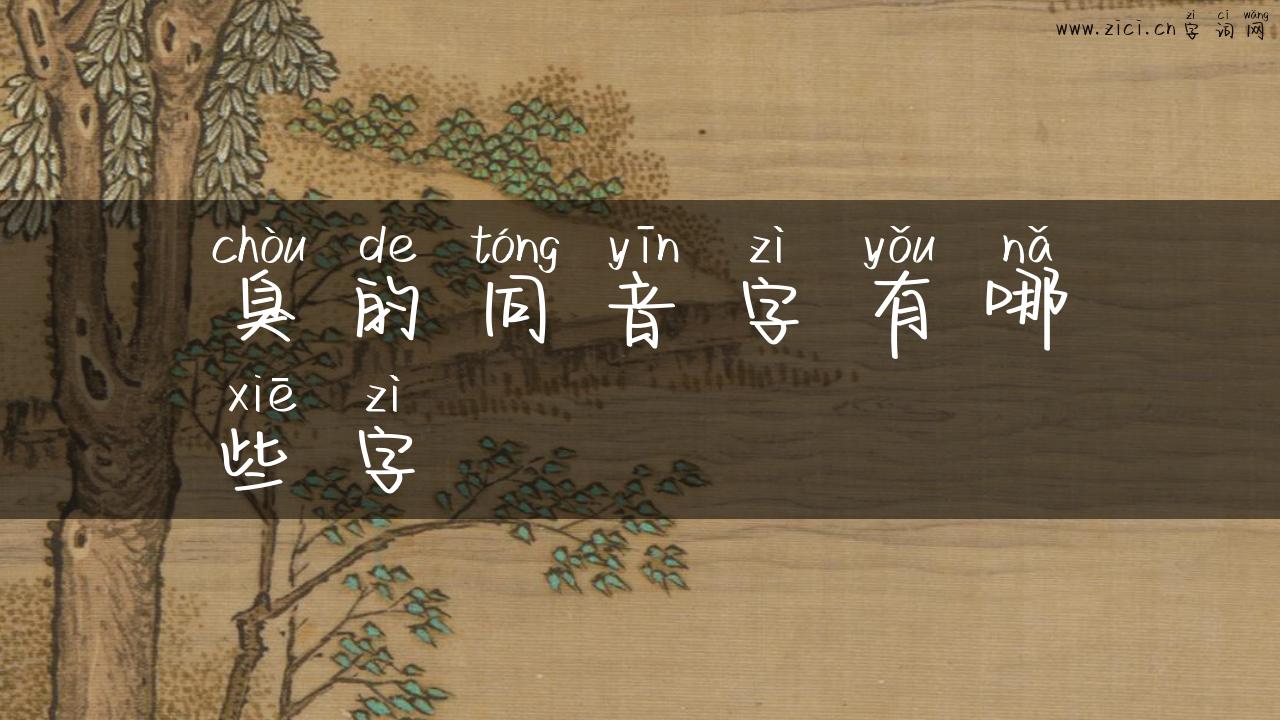 zì cí wǎng
www.zici.cn 字词网
chòu de tóng yīn zì yǒu nǎ
臭的同音字有哪
xiē zì
些字